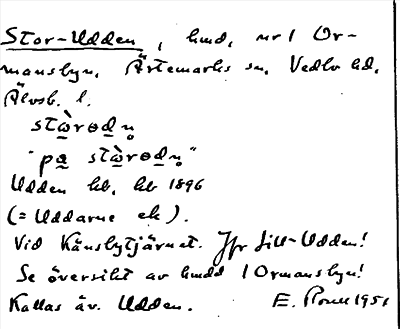 Stor-Udden, hmd, nr 1 Or-
mansbyn. Ärtemarks sn. Vedbo hd.
Älvsb. l.
stẁrɵdn̥
"pa stẁrɵdn̥"
Udden hb. hb 1896
(= Uddarne ek).
Vid Känsbytjärnet. Jfr Lill-Udden!
Se översikt av hmdd i Ormansbyn!
Kallas äv. Udden. E. 1951